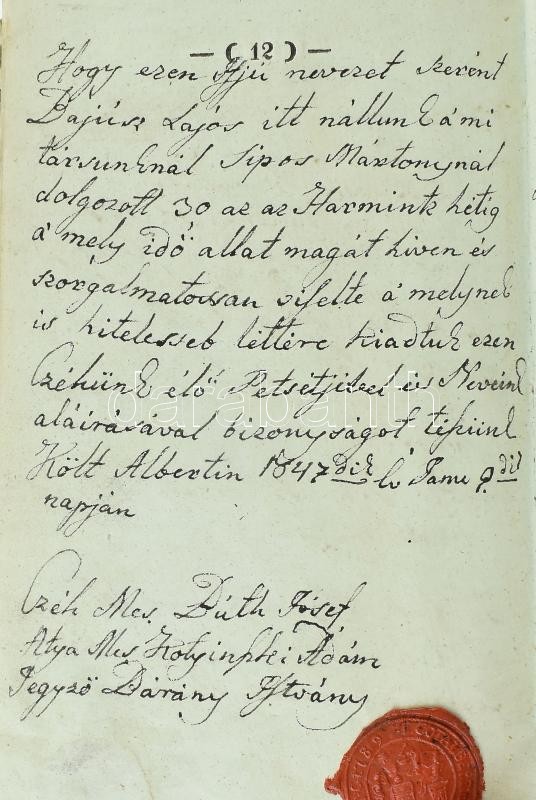 — ( 12 ) —
Hogy ezen Ifjú nevezet szerént
Bajúsz Lajós itt nállunk á mi
társunknál Sipos Mártonynál
dolgozott 30 az az Harmintz hétig
á mely idő allat magát hiven és
szorgalmatossan viselte á melynek
is hitelesseb léttére kiadtuk ezen
Czéhünk élő Petsétjivel és Neveink
aláirásával bizonyságot tépünk
Költ Albertin 1847 dik
napján
Czéh Mes. Dúth Jósef
Atya Mes Ádám
Jegyző Bárány Istvány
darabanth